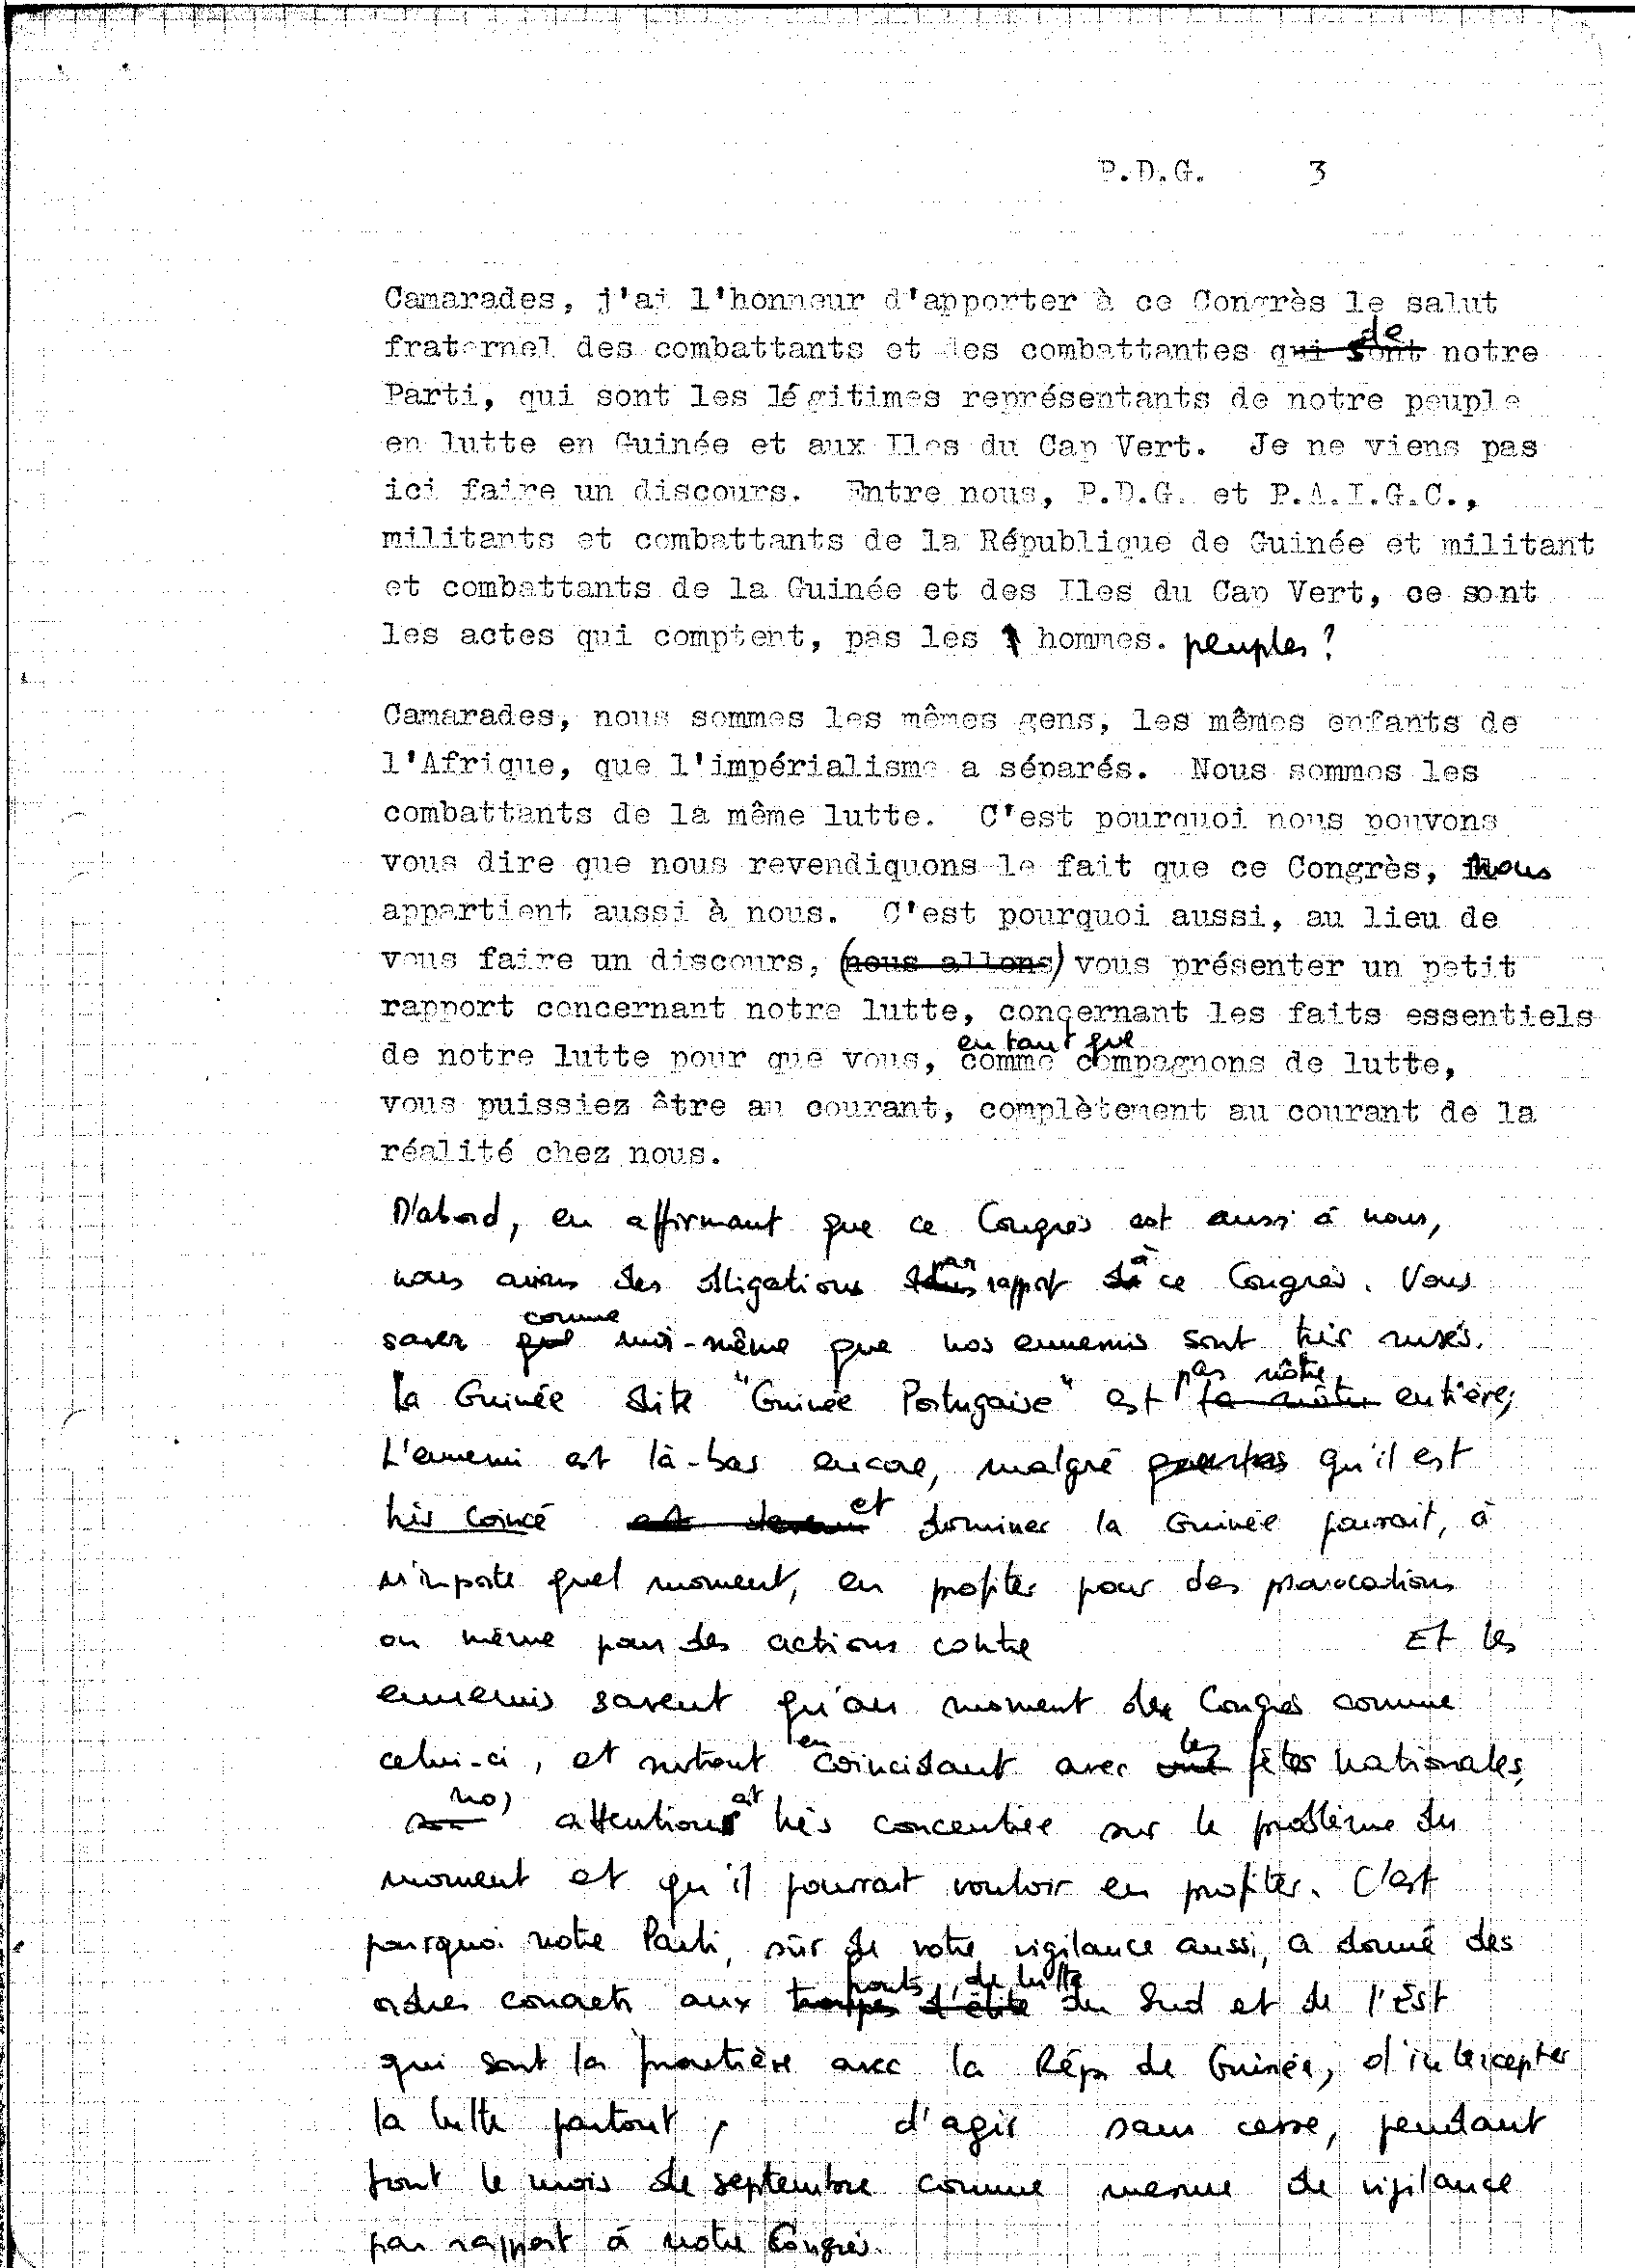 P.D.G. 3
Camarades, j'ai l'honneur d'apporter à ce Congrès le salut
de
fraternel des combattants et des combattantes qui sont notre
Parti, qui sont les légitimes représentants de notre peuple
en lutte en Guinée et aux Iles du Cap Vert. Je ne viens pas
ici faire un discours. Entre nous, P.D.G. et P.A.I.G.C.,
militants et combattants de la République de Guinée et militant
et combattants de la Guinée et des Iles du Cap Vert, ce sont
les actes qui comptent, pas les hommes. peuples?
Camarades, nous sommes les mêmes gens, les mêmes enfants de
l'Afrique, que l'impérialisme a séparés. Nous sommes les
combattants de la même lutte. C'est pourquoi nous pouvons
vous dire que nous revendiquons le fait que ce Congrès, nous
appartient aussi à nous. C'est pourquoi aussi, au lieu de
vous faire un discours, (nous allons) vous présenter un petit
rapport concernant notre lutte, concernant les faits essentiels
en tant que
de notre lutte pour que vous, comme compagnons de lutte,
vous puissiez être au courant, complètement au courant de la
réalité chez nous.
D'abord, en affirmant que ce Congrès est aussi à nous,
par à
nous avons des obligations dans rapport de ce Congrès. Vous
comme
savez que moi-même que nos ennemis sont très rusés.
pas nôtre
la Guinée dite "Guinée Portugaise" est la nôtre entière;
L'ennemi est là-bas encore, malgré qu'il est
et
très coincé est devenu dominer la Guinée pourrait, à
n'importe quel moment, en profiter pour des provocations
ou même pour des actions contre Et les
ennemis savent qu'au moment des Congrès comme
en les
celui-ci, et surtout coincidant avec une fêtes nationales,
nos est
son attention très concentrée sur le problème du
moment et qu'il pourrait vouloir en profiter. C'est
pourquoi notre Parti, sûr de votre vigilance aussi, a donné des
fronts de lutte
ordres concrets aux troupes d'élite du Sud et de l'Est
qui sont la frontière avec la Rép de Guinée, d'intercepter
la lutte partout, d'agir sans cesse, pendant
tout le mois de septembre comme mesure de vigilance
par rapport à notre Congrès.